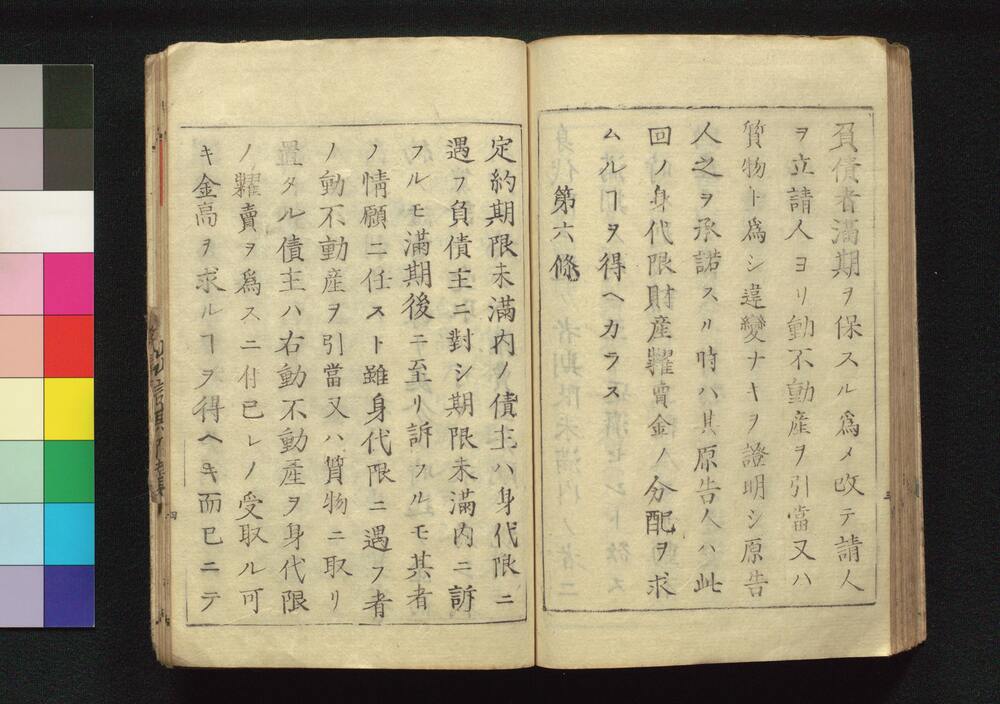 負債者滿期ヲ保スル爲メ改テ請人
ヲ立請人ヨリ動不動産ヲ引當又ハ
質物ト爲シ違變ナキヲ證明シ原告
人之ヲ承諾スル時ハ其原告人ハ此
回ノ身代限財産糶賣金ノ分配ヲ求
ムルヿヲ得ヘカラス
第六條
定約期限未滿内ノ債主ハ身代限ニ
遇フ負債主ニ對シ期限未滿内ニ訴
フルモ滿期後ニ至リ訴フルモ其者
ノ情願ニ任スト雖身代限ニ遇フ者
ノ動不動産ヲ引當又ハ質物ニ取リ
置タル債主ハ右動不動産ヲ身代限
ノ糶賣ヲ爲スニ付已レノ受取ル可
キ金高ヲ求ルヿヲ得ヘキ而已ニテ